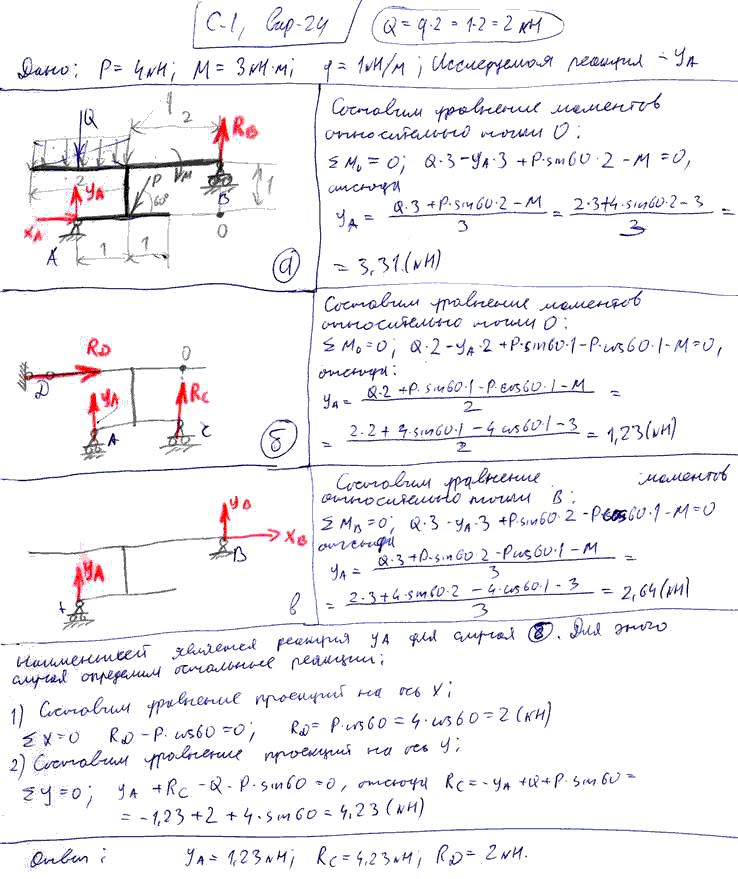 С-1, Вар-24
Q = q·2 = 1·2 = 2 кН
Дано: P = 4кН; M = 3кН·м; q = 1кН/м; Исследуемая реакция – YA
Q
2
RB
2
YA
P
60°
M
B
1
XA
A
1
1
O
а
Составим уравнение моментов
относительно точки O:
ΣMo = 0; Q·3 – YA·3 + P·sin60·2 – M = 0,
отсюда
YA = Q·3 + P·sin60·2 – M / 3 = 2·3+4·sin60·2 – 3 / 3 =
= 3,31 (кН)
RD
D
YA
A
O
RC
C
б
Составим уравнение моментов
относительно точки O:
ΣMo = 0; Q·2 – YA·2 + P·sin60·1 – P·cos60·1 – M = 0,
отсюда:
YA = Q·2 + P·sin60·1 – P·cos60·1 – M / 2 =
= 2·2 + 4·sin60·1 – 4·cos60·1 – 3 / 2 = 1,23 (кН)
YB
XB
B
YA
в
Составим уравнение моментов
относительно точки B:
ΣMB = 0; Q·3 – YA·3 + P·sin60·2 – P·cos60·1 – M = 0
отсюда
YA = Q·3 + P·sin60·2 – P·cos60·1 – M / 3 =
= 2·3 + 4·sin60·2 – 4·cos60·1 – 3 / 3 = 2,64 (кН)
Наименьшей является реакция YA для случая б. Для этого
случая определим остальные реакции:
1) Составим уравнение проекций на ось X:
ΣX = 0 RD – P·cos60 = 0; RD = P·cos60 = 4·cos60 = 2 (кН)
2) Составим уравнение проекций на ось Y:
ΣY = 0; YA + RC – Q – P·sin60 = 0, отсюда RC = –YA + Q + P·sin60 =
= –1,23 + 2 + 4·sin60 = 4,23 (кН)
Ответ: YA = 1,23кН; RC = 4,23кН; RD = 2кН.